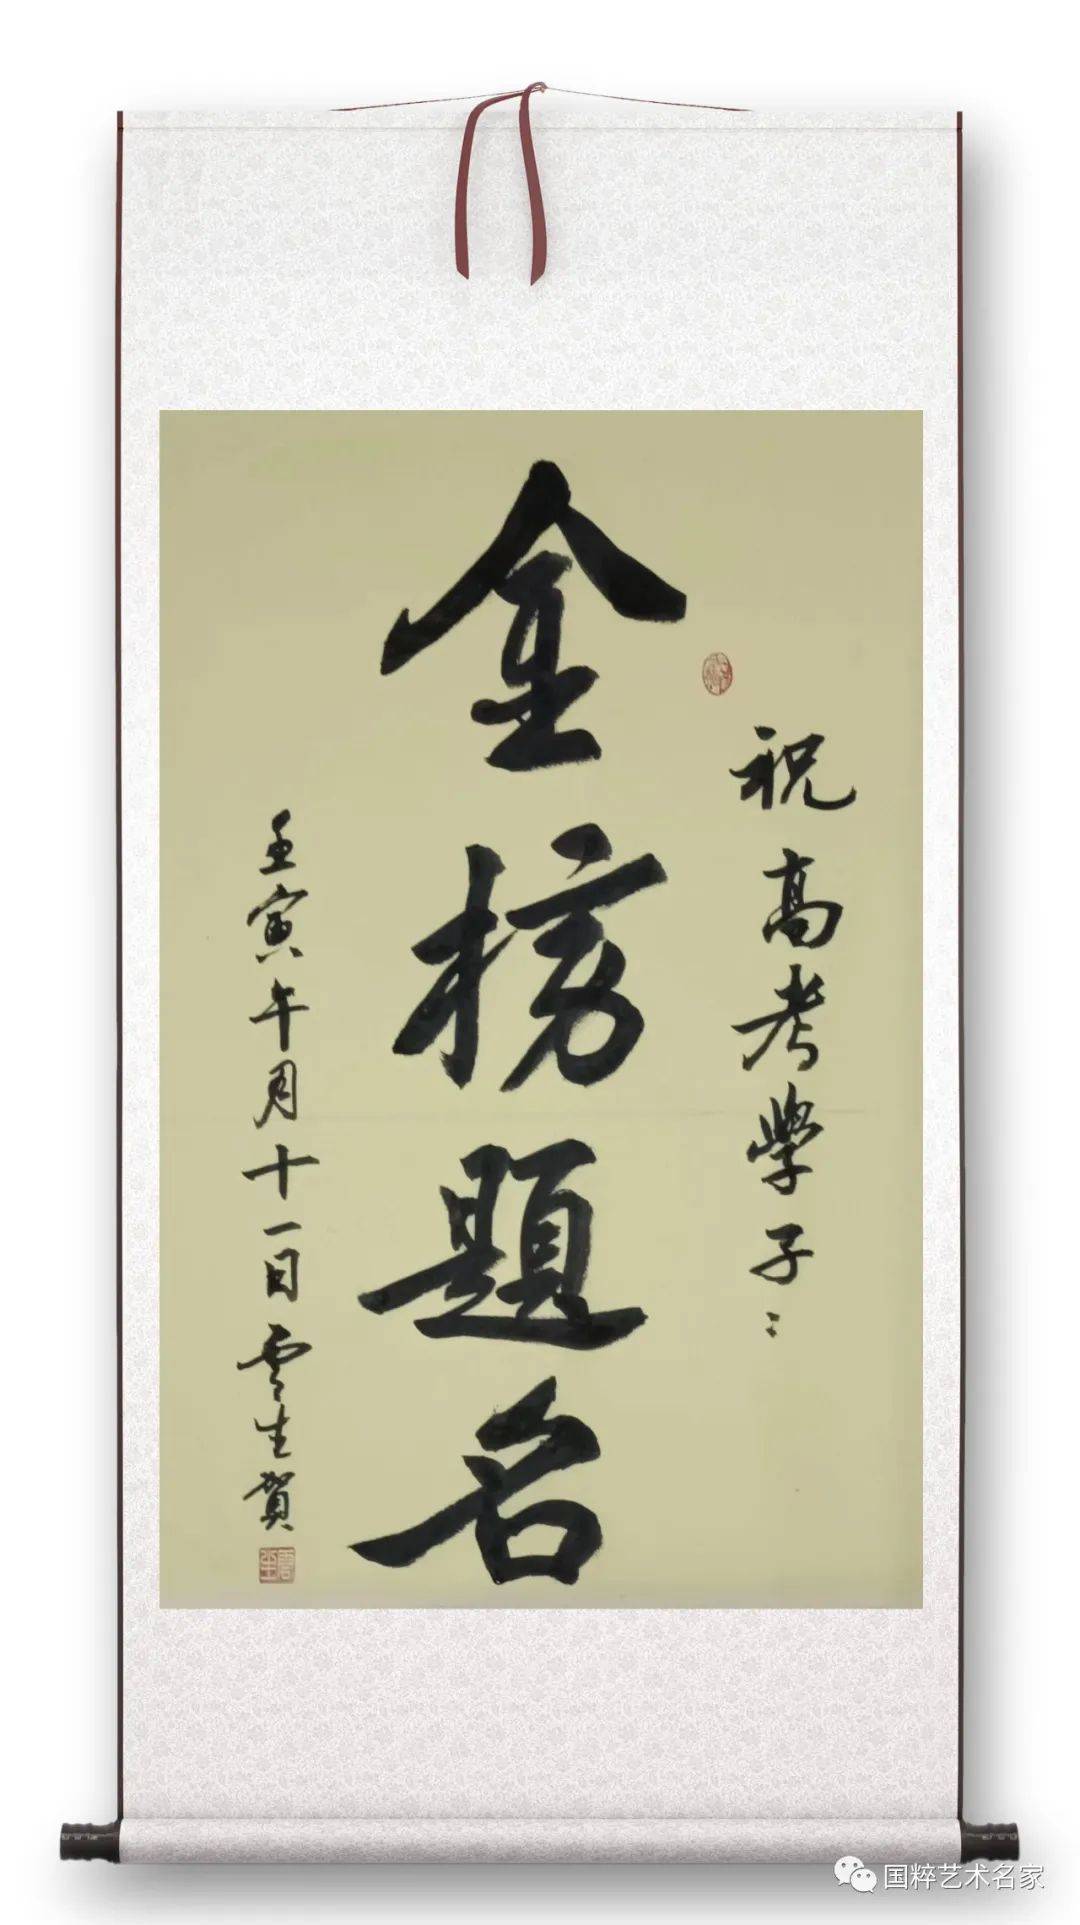 祝高考學子:
金榜題名
壬寅午月十一日雲生賀
雲生
国粹艺术名家